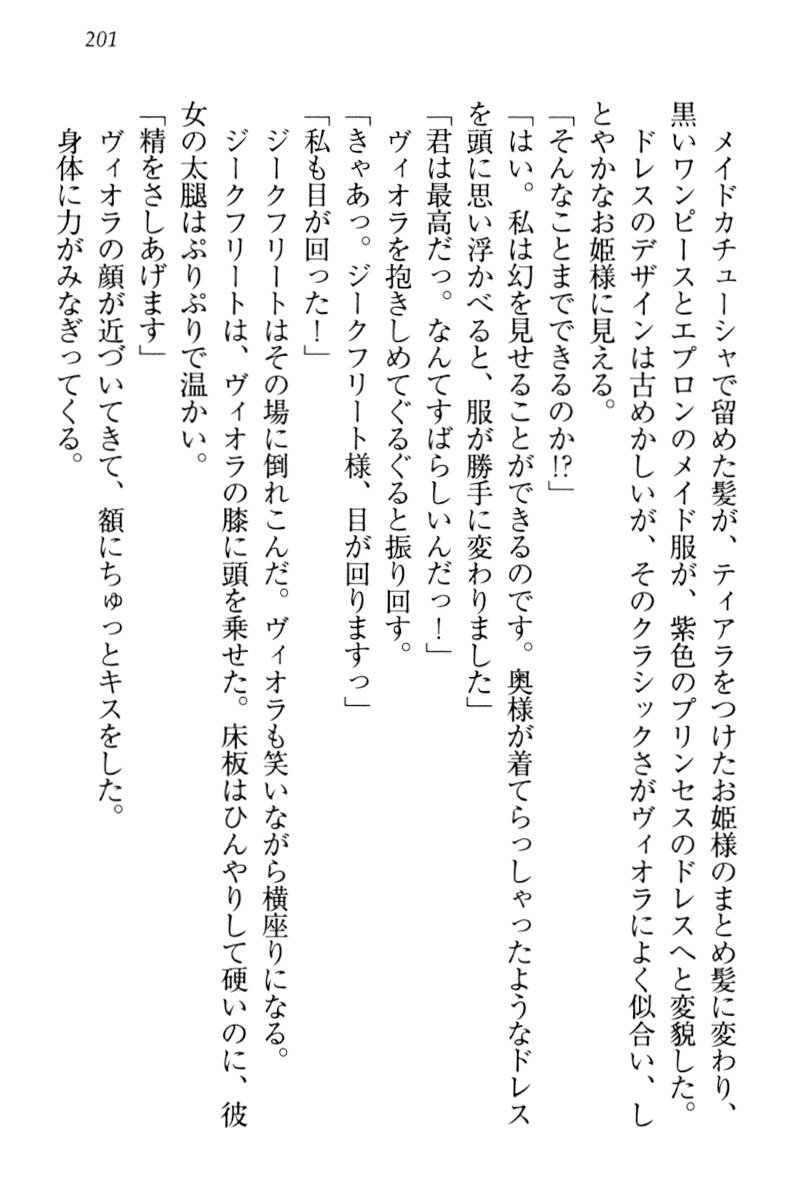 201
メイドカチューシャで留めた髪が、ティアラをつけたお姫様のまとめ髪に変わり、
黒いワンピースとエプロンのメイド服が、紫色のプリンセスのドレスへと変貌した。
ドレスのデザインは古めかしいが、そのクラシックさがヴィオラによく似合い、し
とやかなお姫様に見える。
「そんなことまでできるのか!?」
「はい。私は幻を見せることができるのです。奥様が着てらっしゃったようなドレス
を頭に思い浮かべると、服が勝手に変わりました」
「君は最高だっ。なんてすばらしいんだっ！」
ヴィオラを抱きしめてぐるぐると振り回す。
「きゃあっ。ジークフリート様、目が回りますっ」
「私も目が回った！」
ジークフリートはその場に倒れこんだ。ヴィオラも笑いながら横座りになる。
ジークフリートは、ヴィオラの膝に頭を乗せた。床板はひんやりして硬いのに、彼
女の太腿はぷりぷりで温かい。
「精をさしあげます」
ヴィオラの顔が近づいてきて、額にちゅっとキスをした。
身体に力がみなぎってくる。